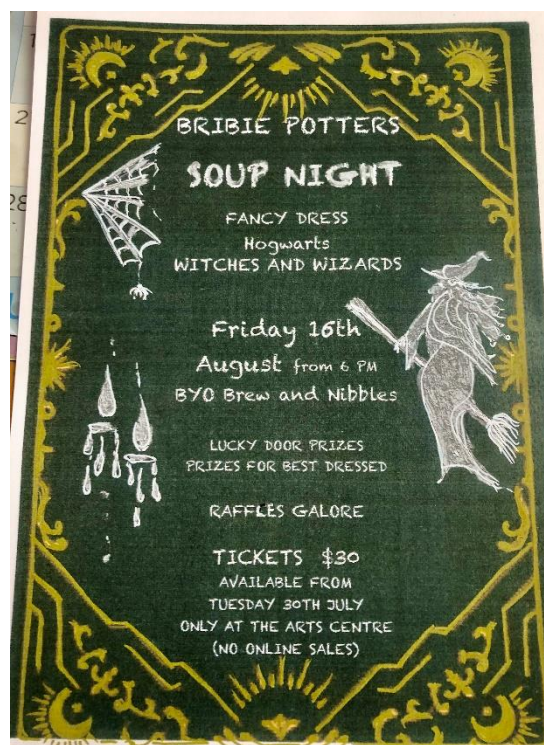 2
28
BRIBIE POTTERS
SOUP NIGHT
FANCY DRESS
Hogwarts
WITCHES AND WIZARDS
Friday 16th
August from 6 PM
BYO Brew and Nibbles
LUCKY DOOR PRIZES
PRIZES FOR BEST DRESSED
RAFFLES GALORE
TICKETS $30
AVAILABLE FROM
TUESDAY 30TH JULY
ONLY AT THE ARTS CENTRE
(NO ONLINE SALES)